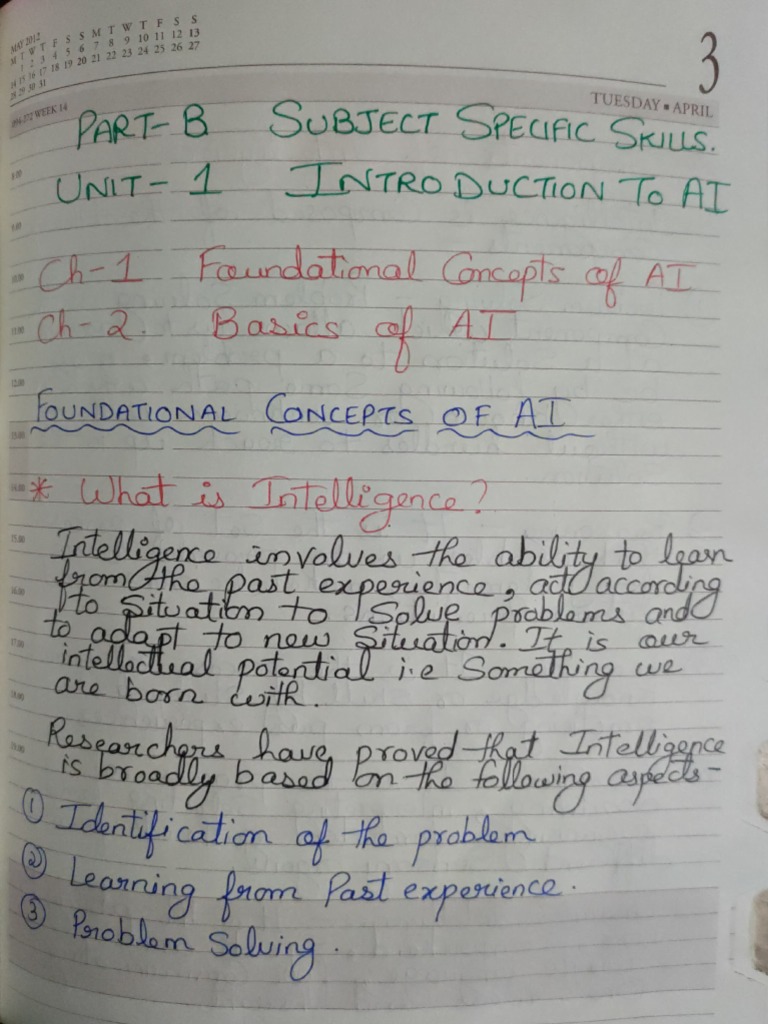 MAY 2012
M T W T F S S M T W T F S S
1 2 3 4 5 6 7 8 9 10 11 12 13
14 15 16 17 18 19 20 21 22 23 24 25 26 27
28 29 30 31
3
TUESDAY ▪ APRIL
WEEK 14
PART-B SUBJECT SPECIFIC SKILLS.
8.00
UNIT-1 INTRODUCTION TO AI
9.00
10.00
Ch-1 Foundational Concepts of AI
11.00
Ch-2. Basics of AI
12.00
FOUNDATIONAL CONCEPTS OF AI
13.00
14.00
* What is Intelligence?
15.00
Intelligence involves the ability to learn
from the past experience, act according
16.00
to Situation to Solve problems and
to adapt to new Situation. It is our
17.00
intellectual potential i.e Something we
are born with.
18.00
Researchers have proved that Intelligence
19.00
is broadly based on the following aspects-
① Identification of the problem
② Learning from Past experience.
③ Problem Solving.